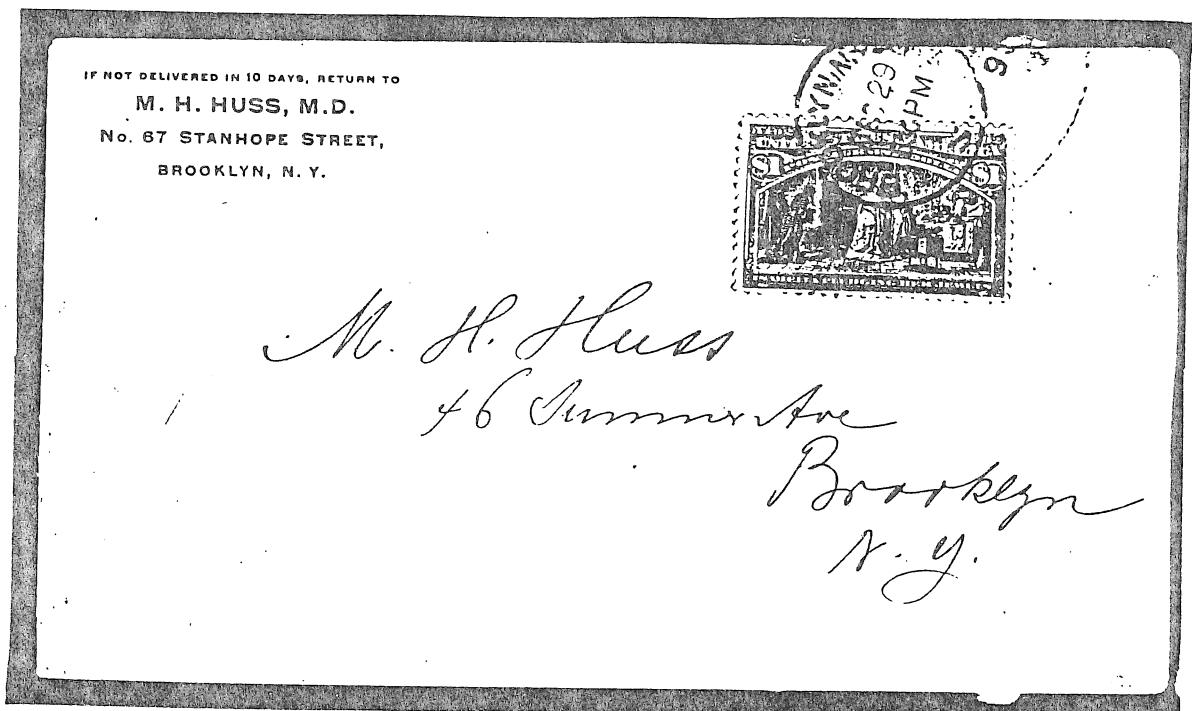 IF NOT DELIVERED IN 10 DAYS, RETURN TO
M. H. HUSS, M.D.
No. 67 STANHOPE STREET,
BROOKLYN, N. Y.
29
PM
$1 $1
M. H. Huss
46 Sumner Ave
Brooklyn
N. Y.